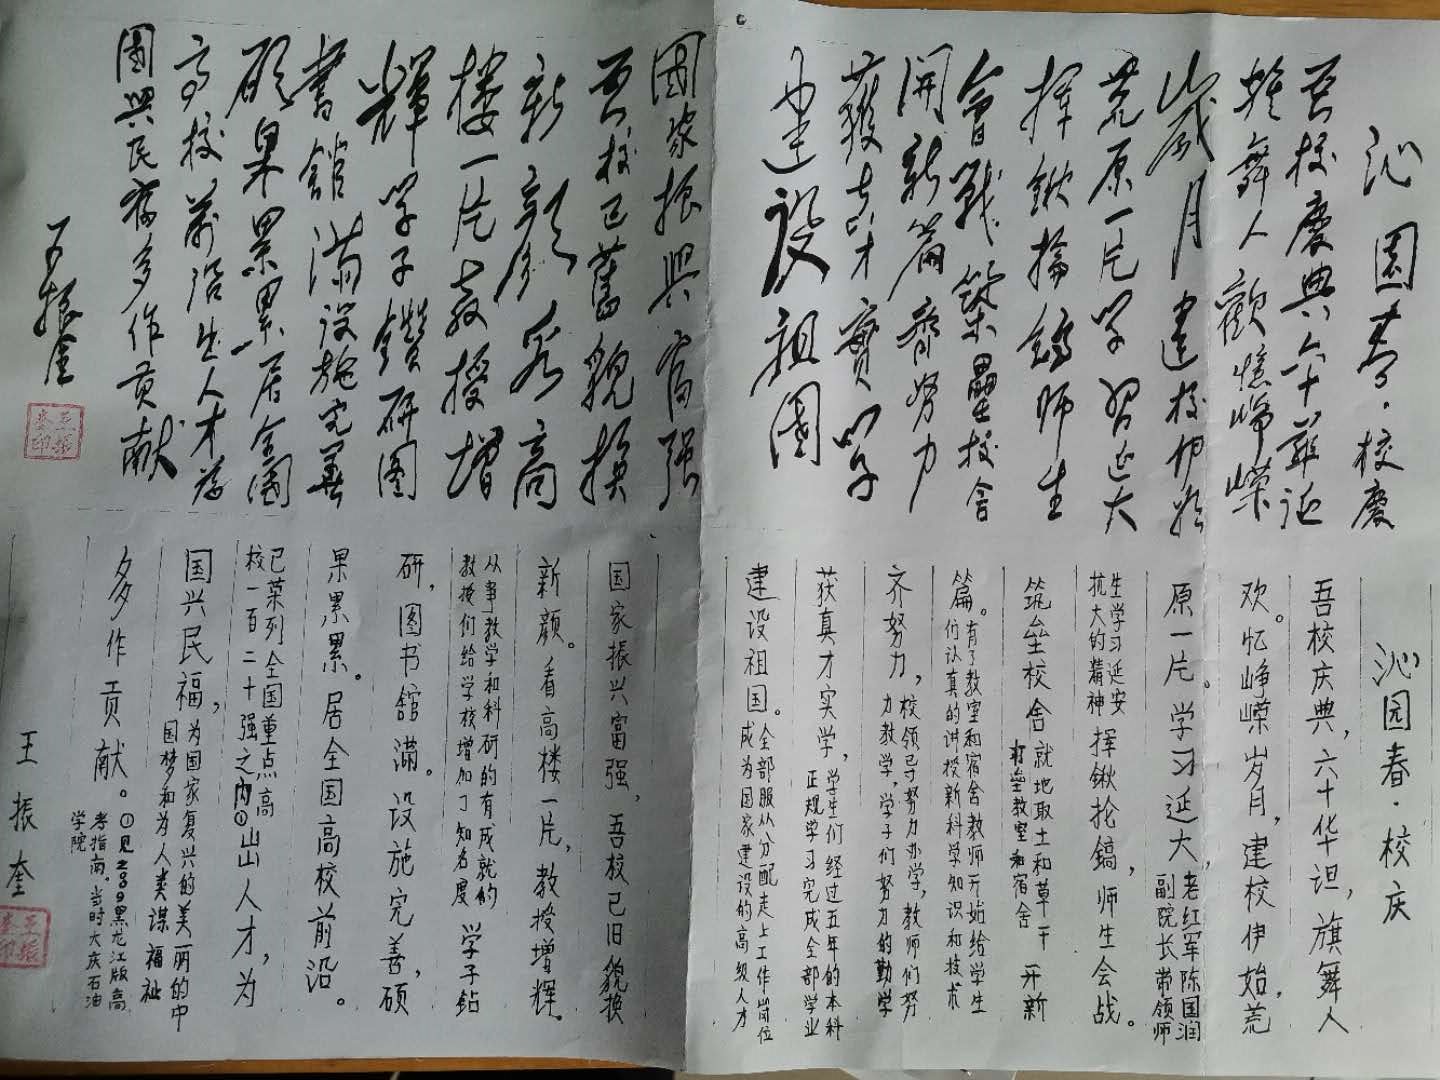 沁園春·校慶
吾校慶典六十華诞
旌舞人歡憶峥嵘
歲月建校伊始
荒原一片学習延大
挥鍬掄鎬师生
會戰築壘校舍
開新篇齊努力
獲真才實学
建设祖國
國家振興富强
吾校已舊貌换
新颜看高
楼一片教授增
輝学子鑽研图
書館滿设施完善
碩果累累居全國
高校前沿出人才为
國興民福多作贡献
王振奎
王振奎印
沁园春·校庆
吾校庆典,六十华坦,旗舞人
欢。忆峥嵘岁月,建校伊始,荒
原一片。学习延大,老红军陈国润
副院长带领师
生学习延安
抗大的精神 挥锹抡镐,师生会战。
筑垒校舍 就地取土和草干
打垒教室和宿舍 开新
篇。有了教室和宿舍教师开始给学生
们认真的讲授新科学知识和技术
齐努力,校领导努力办学,教师们努
力教学,学子们努力的勤学
获真才实学,学生们经过五年的本科
正规学习完成全部学业
建设祖国。全部服从分配走上工作岗位
成为国家建设的高级人才
国家振兴富强,吾校已旧貌换
新颜。看高楼一片,教授增辉。
从事教学和科研的有成就的
教授们给学校增加了知名度 学子钻
研,图书馆满。设施完善,硕
果累累。居全国高校前沿。
已菜列全国重点高
校一百二十强之内①出人才,为
国兴民福,为国家复兴的美丽的中
国梦和为人类谋福祉
多作贡献。①见2009黑龙江版高
考指南,当时大庆石油
学院
王振奎
王振奎印